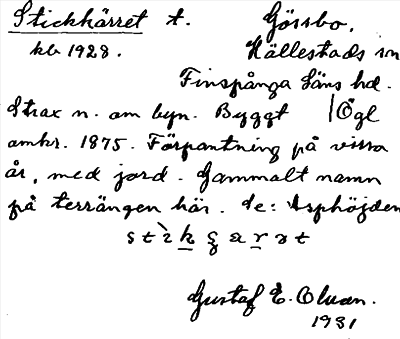 Stickhärret t. Görsbo.
kb 1928. Hällestads sn
Finspånga läns hd.
Strax n. om byn. Byggt Ögl
omkr. 1875. Förpantning på vissa
år, med jord. Gammalt namn
på terrängen här. de: Asphöjden
Gustaf E. Olsson.
1931